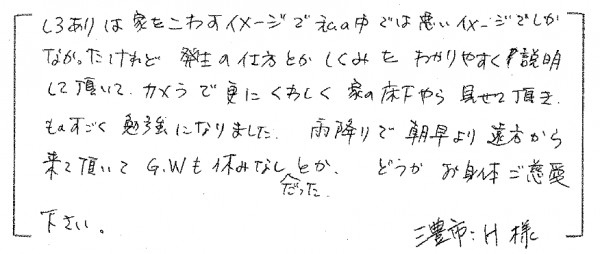 しろありは家をこわすイメージで私の中では悪いイメージでしか
なかったけれど 発生の仕方とか しくみを わかりやすく説明
して頂いて、カメラで更にくわしく 家の床下やら 見せて頂き、
ものすごく 勉強になりました。 雨降りで 朝早より 遠方から
来て頂いて G.Wも休みなしだったとか、 どうか お身体ご慈愛
下さい。
三豊市:H 様